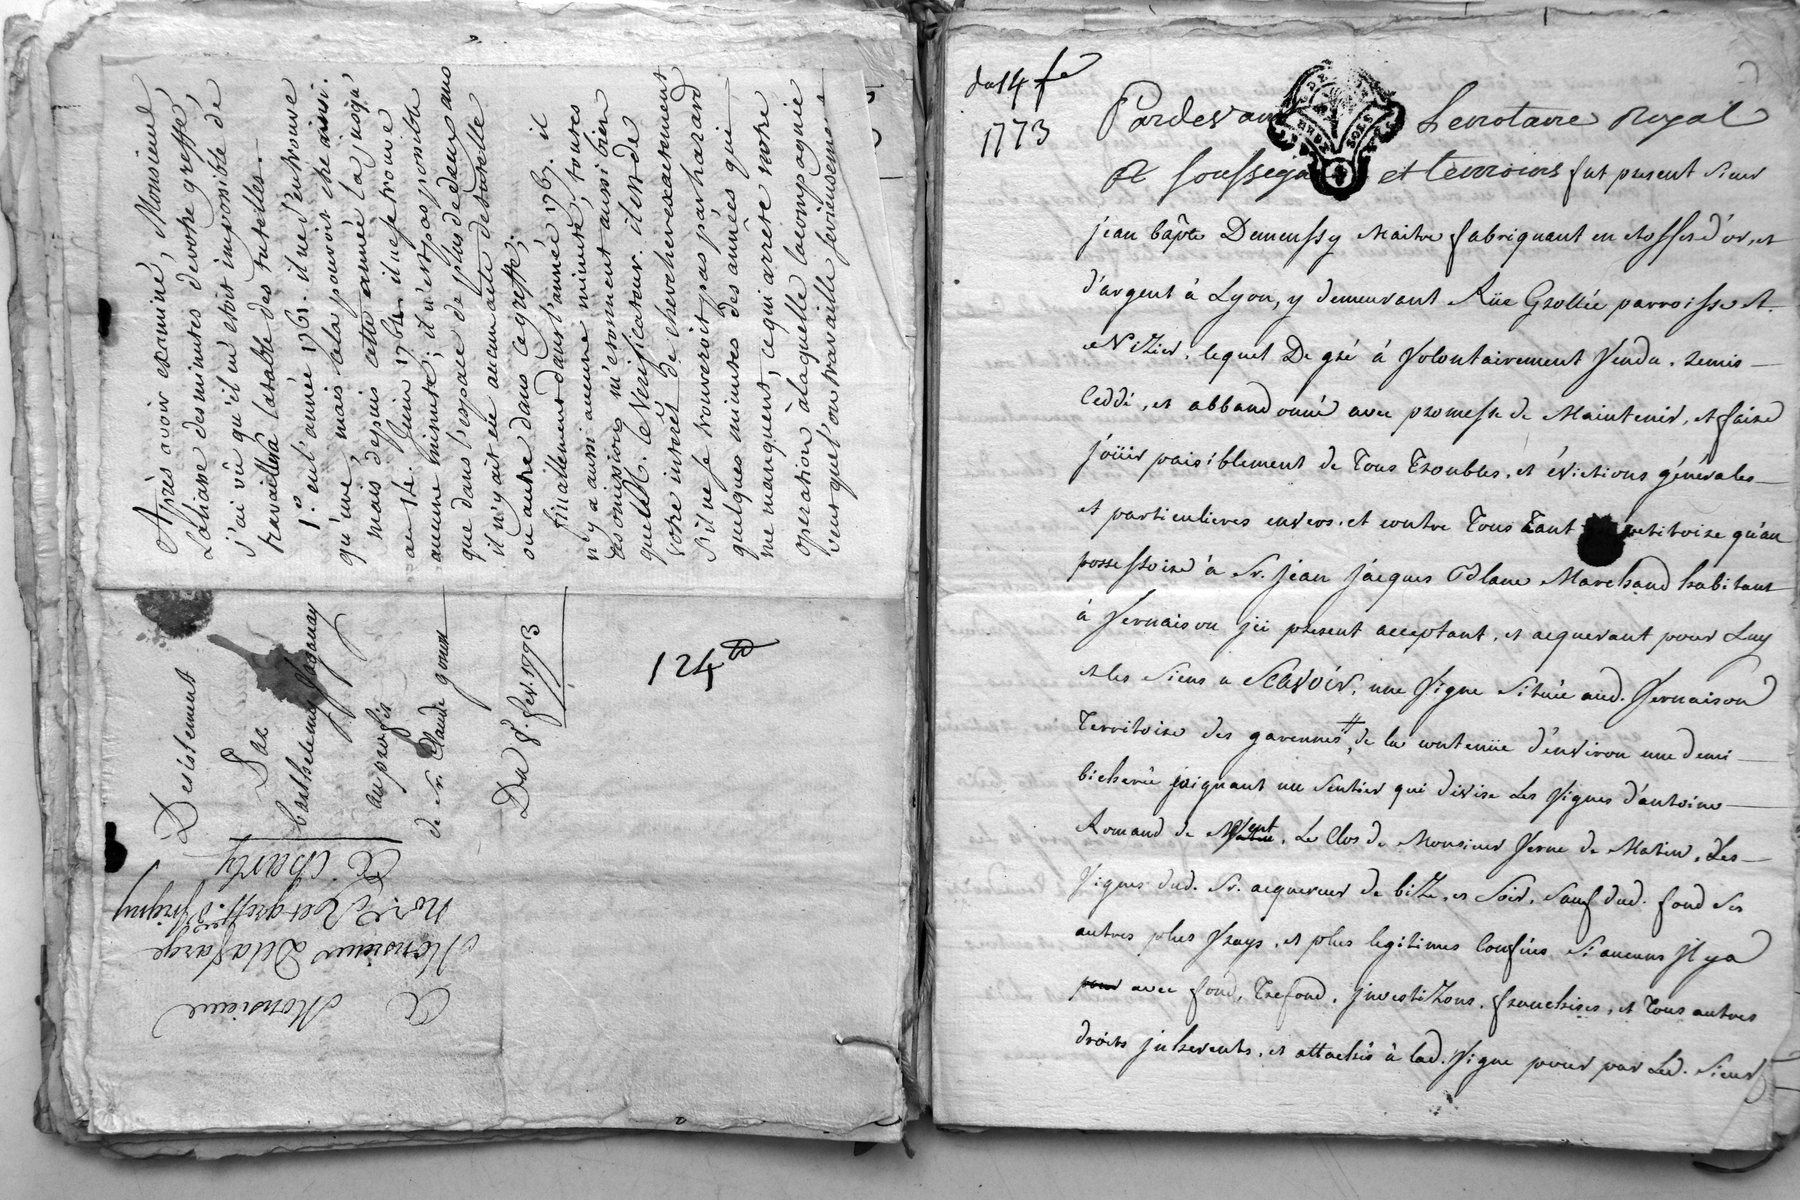 Après avoir examiné, Monsieur,
La liasse des minutes de votre greffe,
j'ai vû qu'il m'étoit impossible de
travailler à la table des tutelles.
1.º en l'année 1761. il ne s'en trouve
qu'une, mais cela pouvoit etre ainsi.
mais depuis cette année la jusqu'
au 14. Juin 1764 il ne se trouve
aucune minute; il n'est pas possible
que dans l'espace de plus de deux ans
il n'y ait eu aucun acte de tutelle
ou autre dans ce greffe;
finallement dans l'année 1769. il
n'y a aussi aucune minute; toutes
ces omissions m'étonnent aussi bien
que M. le Vérificateur. il est de
votre intérêt de chercher exactement
s'il ne se trouveroit pas par hazard
quelques minutes des années qui
me manquent, ce qui arrete notre
operation à laquelle la compagnie
veut que l'on travaille sérieusement.
Desistement
Par
barthelemy
au profit
de Sr. Claude
Du 8e. fev. 1773
124
A Monsieur
Monsieur Delafarge
No.re R.al et greff.
A Charly
du 14 fe
1773
Pardevant Le notaire Royal
et temoins fut present Sieur
jean bapte Demeussy Maitre fabriquant en etoffes d'or, et
d'argent à Lyon, y demeurant Rüe Grollée parroisse St.
Nizier, lequel De gré à Volontairement Vendu, remis
Ceddé, et abbandonné avec promesse de Maintenir, et faire
joüir paisiblement de Tous Troubles, et évictions générales
et particulieres envers, et contre Tous Tant petitoire qu'au
possessoire à Sr. jean jacques Marchand habitant
à Vernaison ici present acceptant, et acquerant pour Luy
et les Siens a SCAVOIR, une Vigne Située aud. Vernaison
Territoire des garennes #, de la contenüe d'environ une demi
bicherée joignant un Sentier qui divise Les Vignes d'antoine
Romand de Vent, Le Clos de Monsieur Verne de Matin, Les
Vignes dud. Sr. acquereur de bize, et Soir, Sauf dud. fond Ses
autres plus Vrays, et plus legitimes Confins Si aucuns Il y a
pour avec fond, Trefond, investizons, franchises, et Tous autres
droits inherents, et attachés à lad. Vigne pour par Led. Sieur